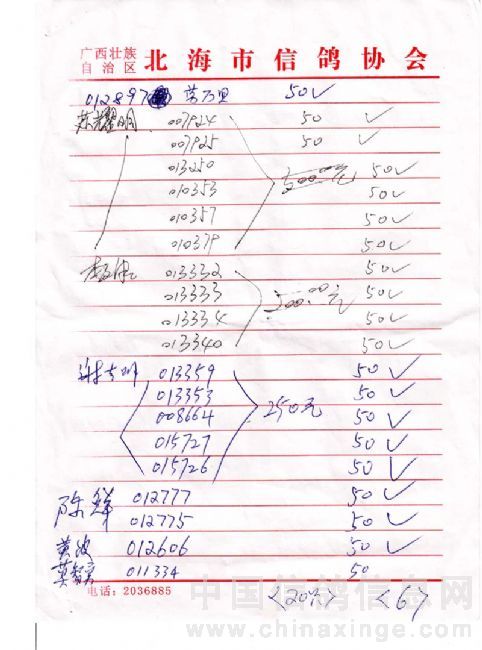 广西壮族
自治区 北海市信鸽协会
012897 万里 50✓
007924 50 ✓
007925 50 ✓
013250 50✓
010353 50✓
010357 50✓
010379 50✓
013332 50✓
013333 200.00元 50✓
013334 50✓
013340 50✓
013359 50✓
013353 50✓
008664 250元 50✓
015727 50✓
015726 50✓
陈鲜 012777 50✓
012775 50✓
黄波 012606 50✓
011334 50
电话：2036885
<6>
中国信鸽信息网
www.chinaxinge.com